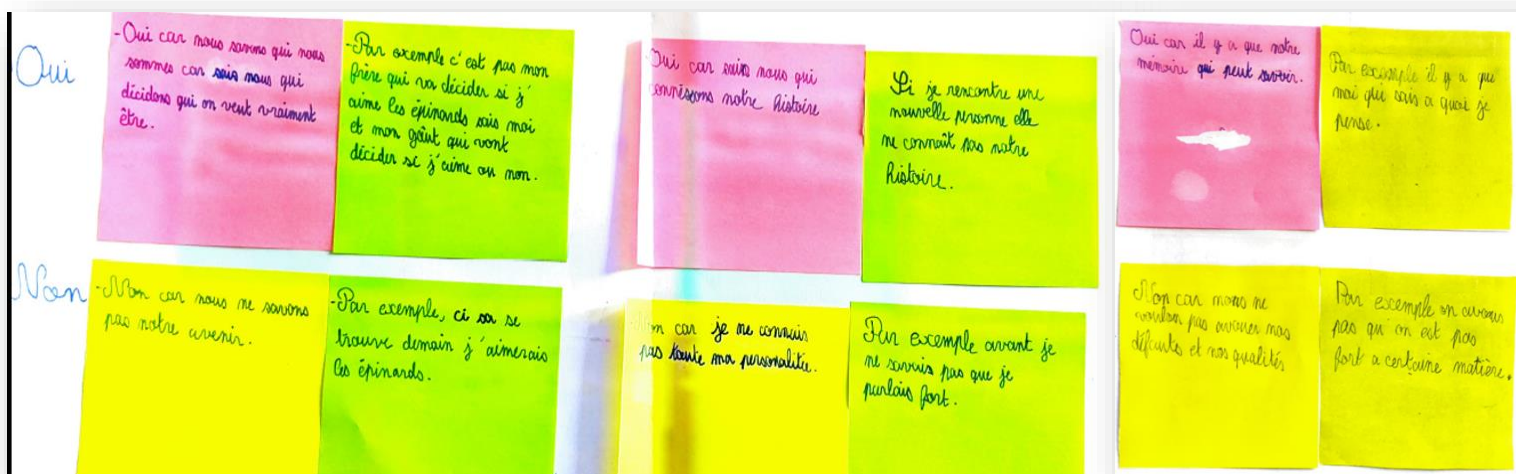 Oui
-Oui car nous savons qui nous
sommes car sais nous qui
décidons qui on veut vraiment
être.
-Par exemple c'est pas mon
frère qui va décider si j'
aime les épinards sais moi
et mon goût qui vont
décider si j'aime ou non.
Oui car sais nous qui
connissons notre histoire
Si je rencontre une
nouvelle personne elle
ne connaît pas notre
histoire.
Oui car il y a que notre
mémoire qui peut savoir.
Par exemple il y a que
moi qui sais a quoi je
pense.
Non
-Non car nous ne savons
pas notre avenir.
-Par exemple, ci sa se
trouve demain j'aimerais
les épinards.
Non car je ne connais
pas toute ma personalitée.
Par exemple avant je
ne savais pas que je
parlais fort.
Non car nous ne
voulon pas avouer nos
défauts et nos qualités
Par exemple on avoues
pas qu'on est pas
fort a certaine matière.